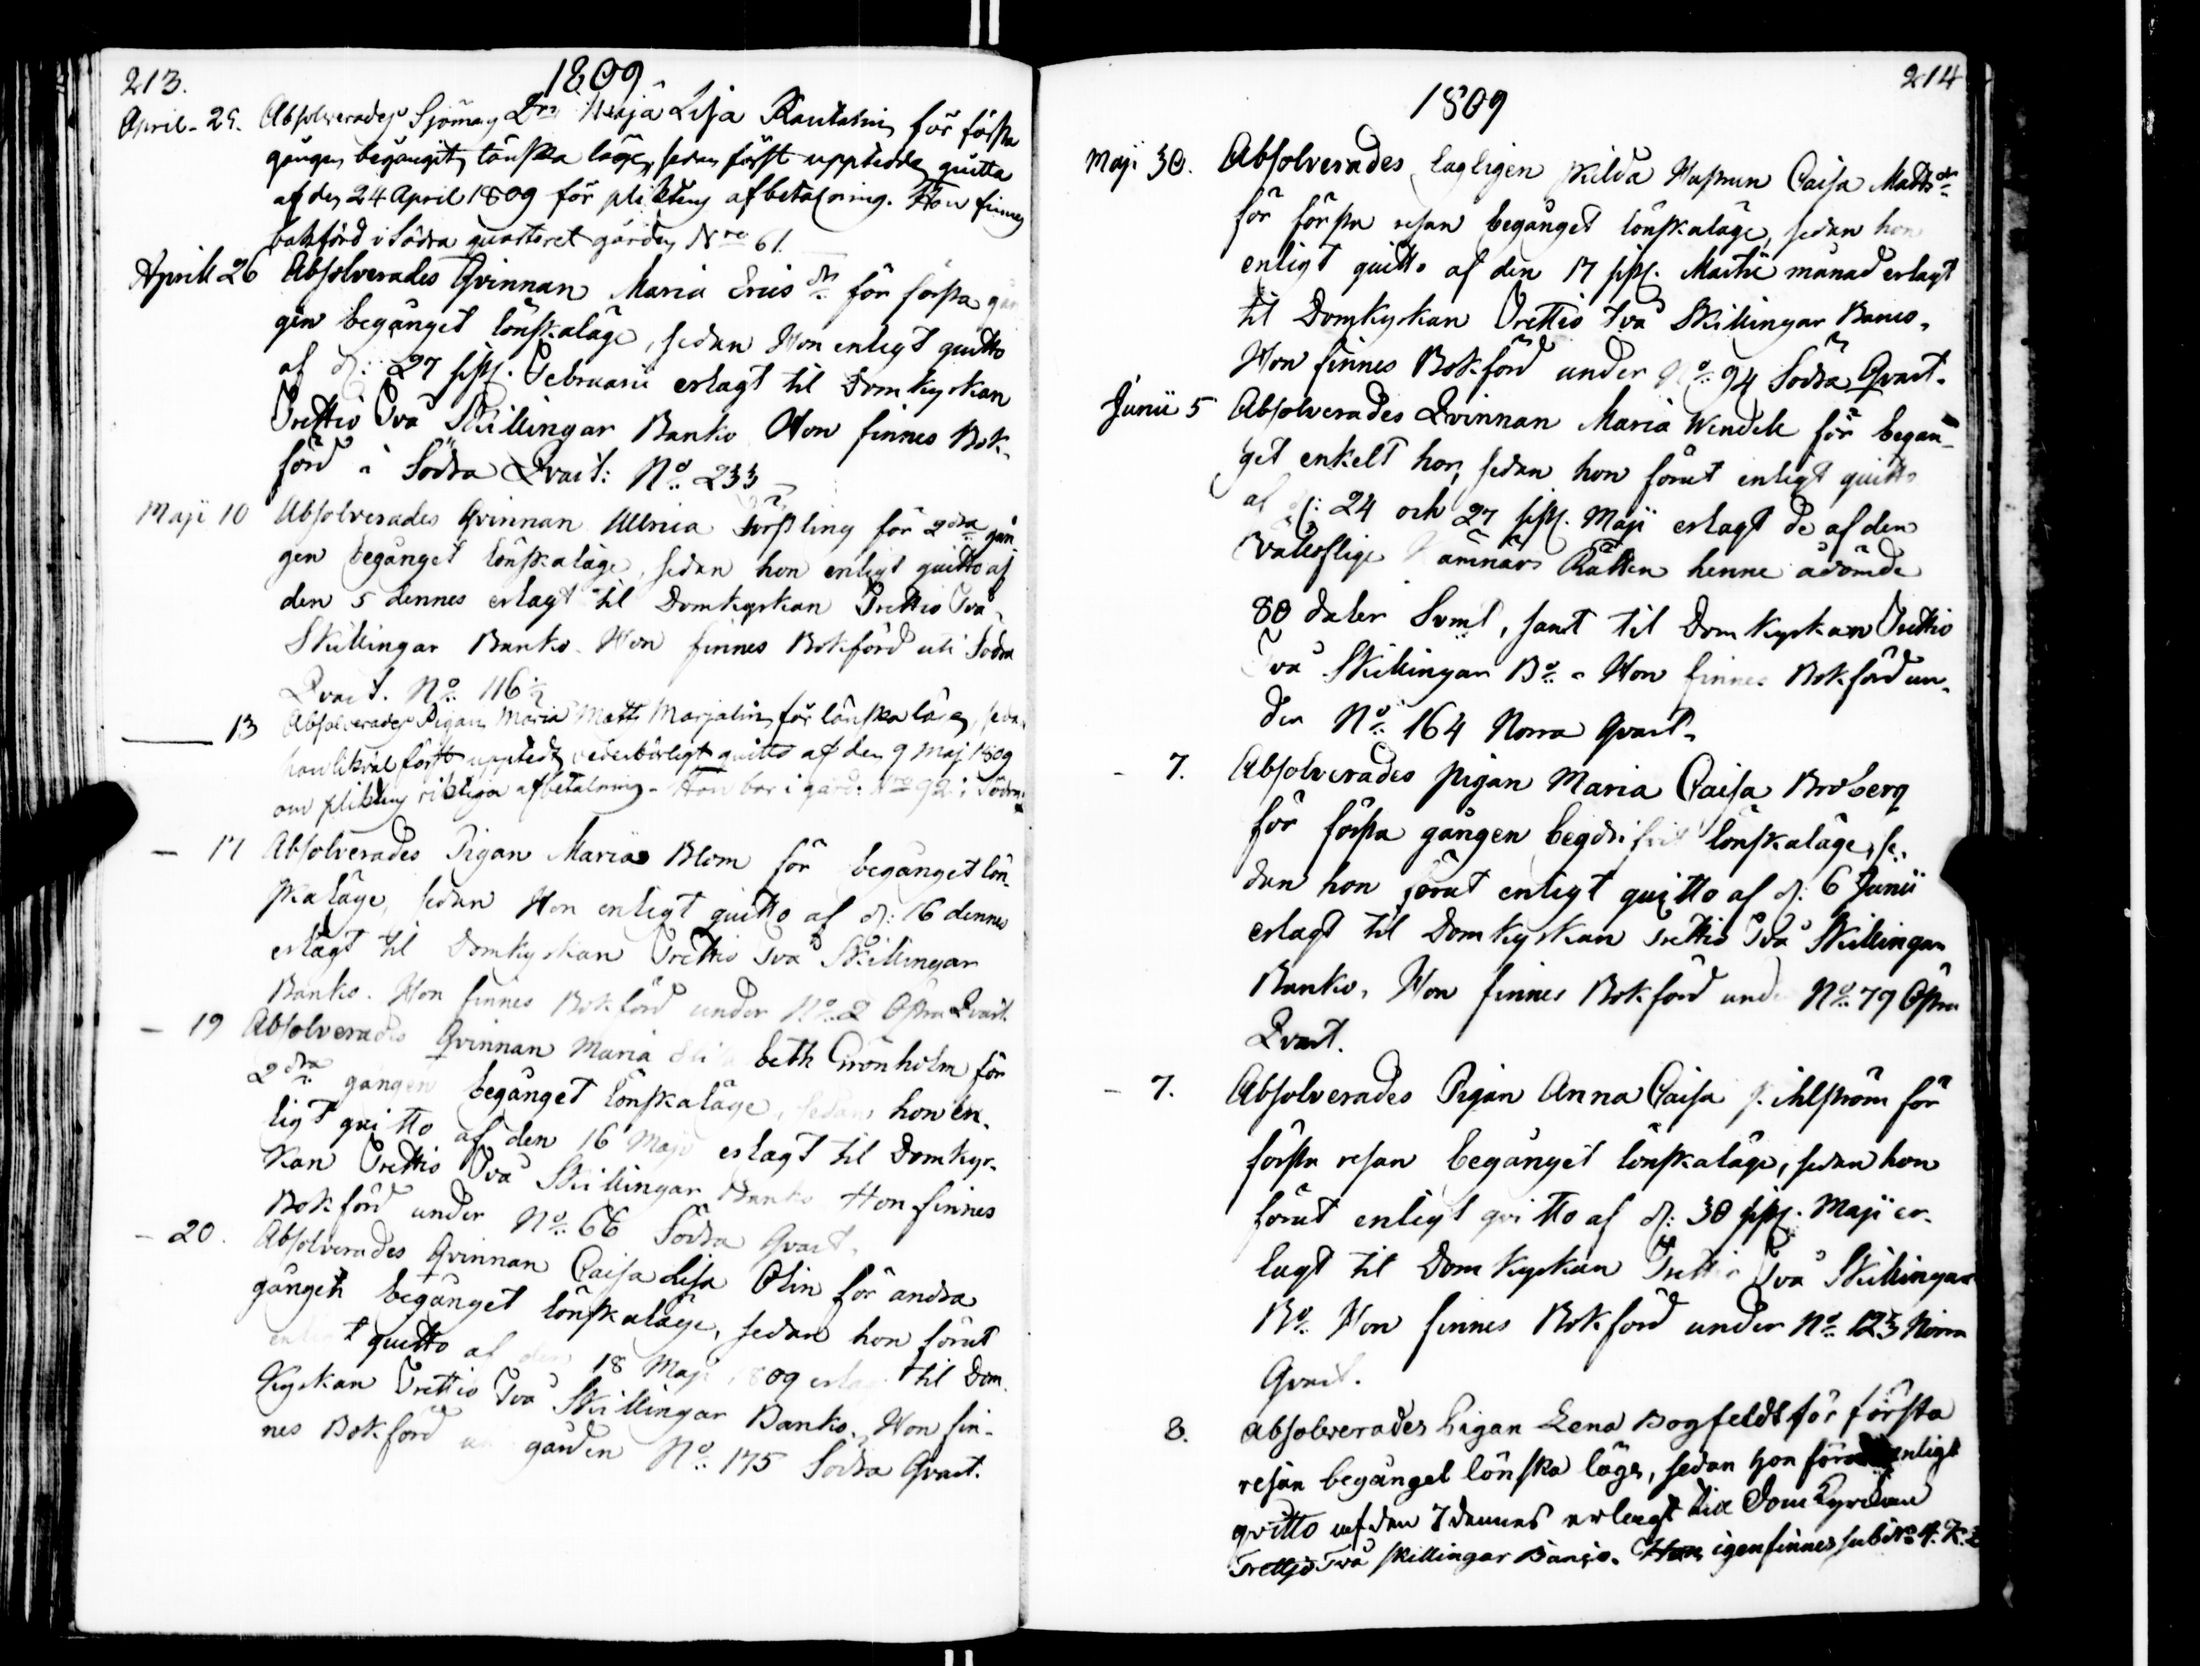 213.
1809.
April - 25. Absolverades Sjöman Lisa för första
gången begångit lönska läge, sedan först upptedda quitta
af den 24 April 1809 för plikten afbetalning. Hon finnes
bokförd i Södra quarteret gården Nro 61.
April 26 Absolverades Qvinnan Maria Ericsdr för första gån
gen begånget lönskaläge, sedan Hon enligt quitto
af d: 27 sistl. Februarii erlagt til Domkyrkan
Trettio Två Skillingar Banko Hon finnes Bok-
förd i Södra Qvart: No 233
Maji 10 Absolverades Qvinnan Ulrica Forssling för 2dra gån
gen begånget lönskaläge, sedan hon enligt quitto af
den 5 dennes erlagt til Domkyrkan Trettio Två
Skillingar Banko. Hon finnes Bokförd uti Södra
Qvart. No 116½
13 Absolverades Pigan Maria Matts Marjalin för lönskaläge, sedan
hon likväl först upptedt vederbörligt quitto af den 9 Maj 1809
om plikten riktiga afbetalning. Hon bor i gård: Nro 92 i Södra
— 17 Absolverades Pigan Maria Blom för begånget lön-
skaläge, sedan Hon enligt quitto af d: 16 dennes
erlagt til Domkyrkan Trettio Två Skillingar
Banko. Hon finnes Bokförd under No 2 Östra Qvart.
— 19 Absolverades Qvinnan Maria Elisabeth Grönholm för
2dra gången begånget lönskaläge, sedan hon en-
ligt qvitto af den 16 Maji erlagt til Domkyr-
kan Trettio Två Skillingar Banko Hon finnes
Bokförd under No 66 Södra Qvart.
— 20. Absolverades Qvinnan Caisa Lisa Olin för andra
gången begånget lönskaläge, sedan hon förut
enligt quitto af den 18 Maji 1809 erlagt til Dom
Kyrkan Trettio Två Skillingar Banko. Hon fin-
nes Bokförd gården No 175 Södra Qvart.
214
1809
Maji 30. Absolverades lagligen skilda Hustrun Caisa Mattsdr
för första resan begånget lönskaläge, sedan hon
enligt quitto af den 17 sistl. Martii månad erlagt
til Domkyrkan Trettio Två Skillingar Banco.
Hon finnes Bokförd under No 94 Södra Qvart.
Junii 5 Absolverades Qvinnan Maria Wendell för began-
get enkelt hor, sedan hon förut enligt quitto
af d: 24 och 27 sistl. Maji erlagt de af den
Vällofliga Kämnärs Rätten henne ådömde
80 daler Svmt, samt til Domkyrkan Trettio
Två Skillingar Bo. Hon finnes Bokförd un-
der No 164 Norra Qvart.
- 7. Absolverades pigan Maria Caisa Broberg
för första gången begdrifvit lönskaläge, se-
dan hon förut enligt quitto af d: 6 Junii
erlagt til Domkyrkan Trettio Två Skillingar
Banko, Hon finnes Bokförd under No 77 Östra
Qvart.
- 7. Absolverades Pigan Anna Caisa för
första resan begånget lönskaläge, sedan hon
förut enligt qvitto af d: 30 sistl. Maji er-
lagt til Domkyrkan Trettio Två Skillingar
Bo. Hon finnes Bokförd under No 123 Norra
Qvart.
8. Absolverades Pigan Lena Bogfeldt för första
resan begånget lönska läge, sedan hon förut enligt
qvitto af den 7 dennes erlagt till Domkyrkan
Trettjo Två skillingar Banco. Hon igenfinnes sub No 4.